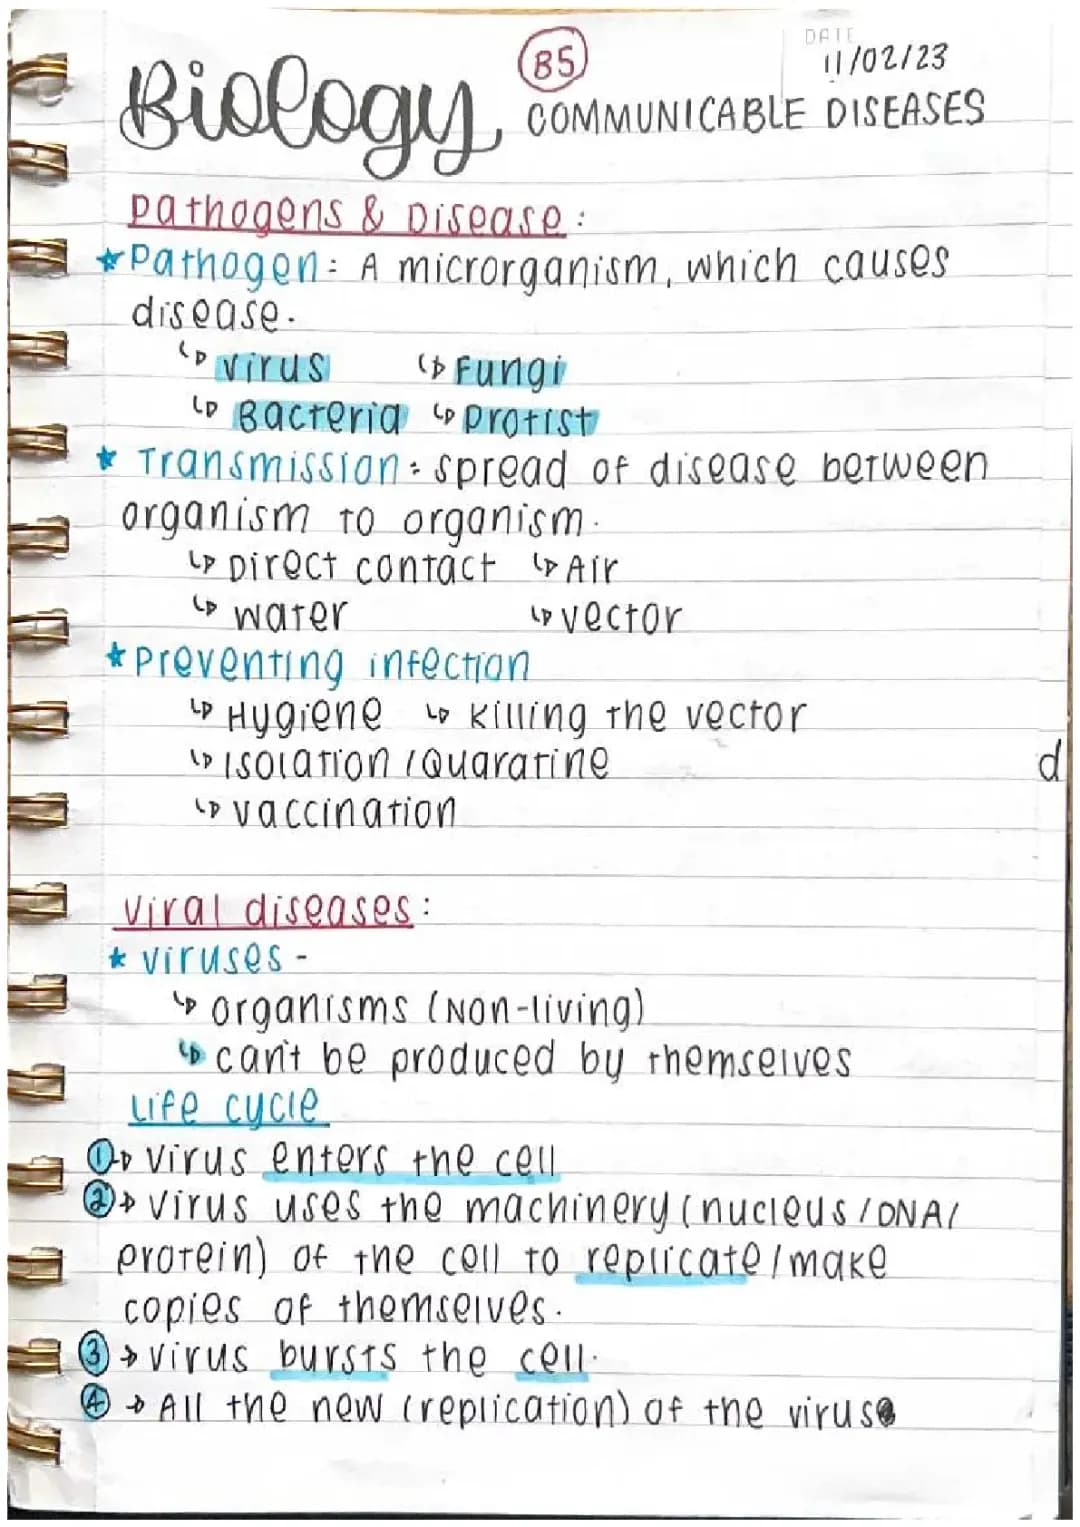 DATE
B5
11/02/23
Biology COMMUNICABLE DISEASES
Pathogens & Disease:
★Pathogen: A microrganism, which causes
disease.
↳ Virus ↳ Fungi
↳ Bacteria ↳ Protist
★ Transmission: spread of disease between
organism to organism.
↳ Direct contact ↳ Air
↳ water ↳ vector
★ Preventing infection
↳ Hygiene ↳ Killing the vector
↳ Isolation / Quaratine
d
↳ vaccination
Viral diseases:
★ viruses -
↳ organisms (Non-living)
↳ can't be produced by themselves
Life cycle
①→ Virus enters the cell
②→ Virus uses the machinery (nucleus/DNA/
protein) of the cell to replicate/make
copies of themselves.
③ → Virus bursts the cell.
④ → All the new (replication) of the virus